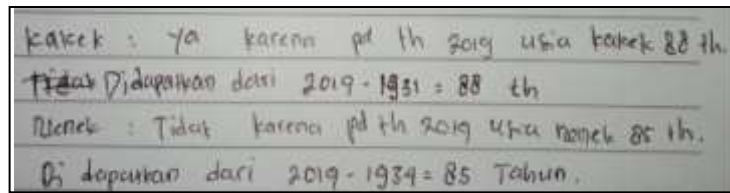 Kakek : Ya karena pd th 2019 usia kakek 88 th.
Didapatkan dari 2019 - 1931 = 88 th
Nenek : Tidak karena pd th 2019 usia nenek 85 th.
Di dapatkan dari 2019 - 1934 = 85 Tahun.